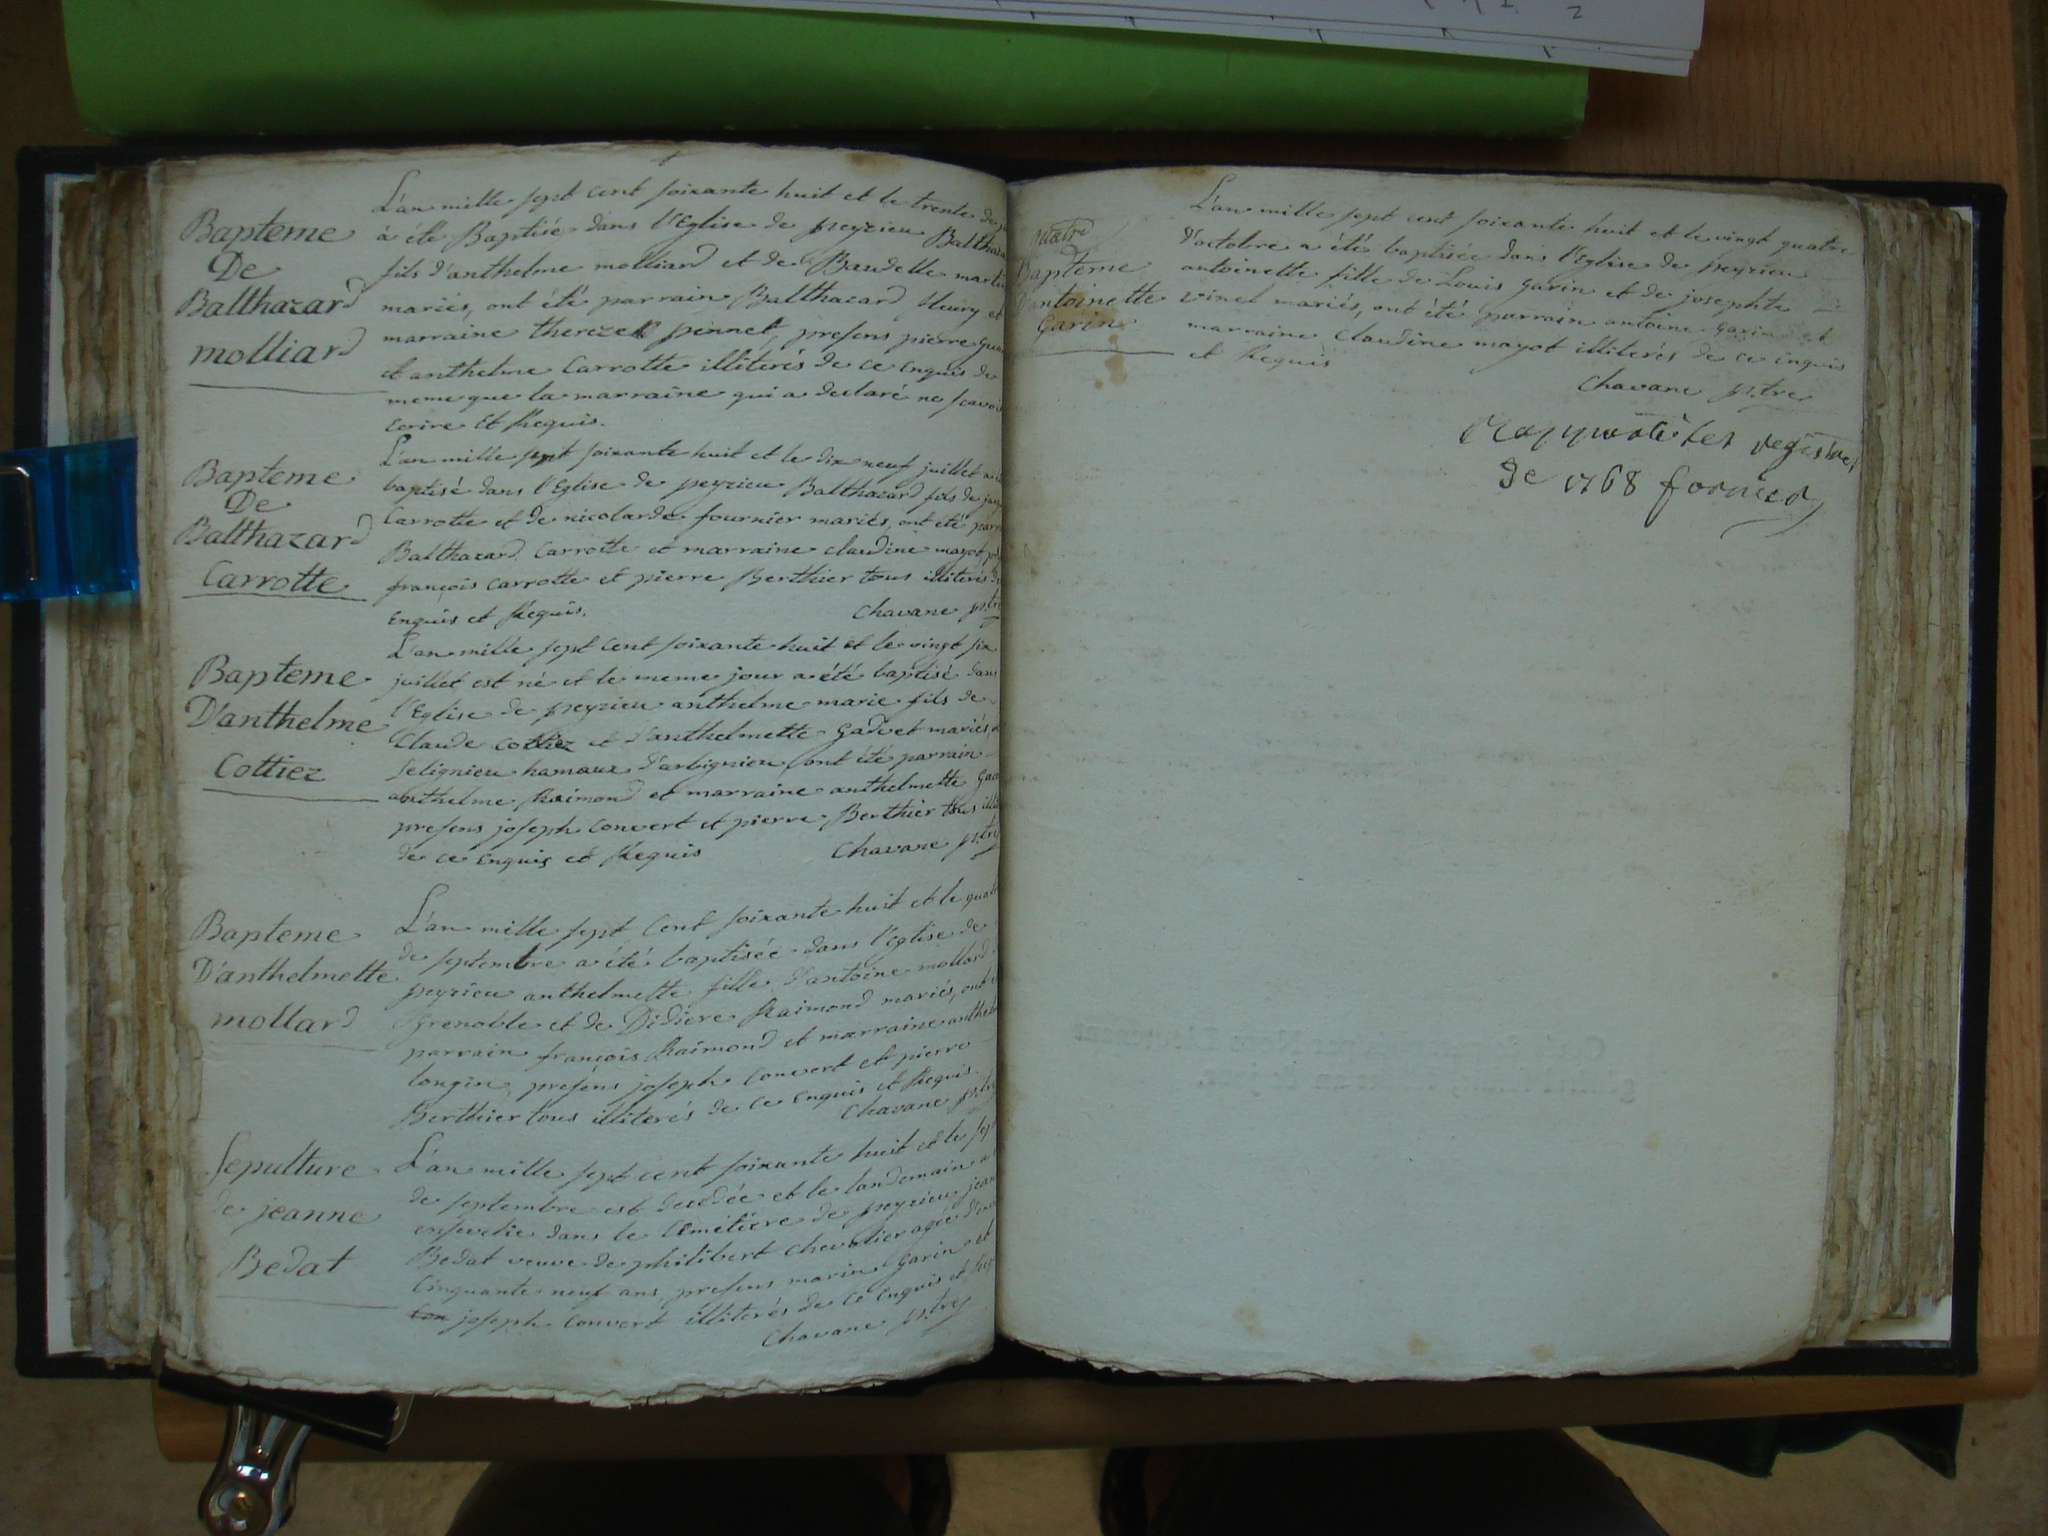 Bapteme
De
Balthazard
molliard
L'an mille sept cent soixante huit et le trente de
à été Baptisé dans l'Eglise de peyzieu Balthazard
fils d'anthelme molliard et de Baudelle martin
mariés, ont été parrain Balthazard fleury et
marraine thereze pinnet, presens pierre
et anthelme Carrotte illiterés de ce enquis de
meme que la marraine qui a declaré ne scavoir
ecrire et Requis.
Bapteme
De
Balthazard
Carrotte
L'an mille sept soixante huit et le dix neuf juillet a été
baptisé dans l'Eglise de peyzieu Balthazard fils de
Carrotte et de nicolarde fournier mariés, ont été
Balthazard Carrotte et marraine claudine mayot
françois Carrotte et pierre Berthier tous illiterés de
Enquis et Requis. Chavane ptre
Bapteme
D'anthelme
Cottiez
L'an mille sept Cent soixante huit et le vingt six
juillet est né et le meme jour a été baptisé dans
l'Eglise de peyzieu anthelme marie fils de
Claude cottiez et d'anthelmette Gadvet mariés
selignieu hamaux d'arbignieu, ont été parrain
anthelme Raimond et marraine anthelmette
presens joseph Convert et pierre Berthier tous
de ce enquis et Requis Chavane ptre
Bapteme
D'anthelmette
mollard
L'an mille sept Cent soixante huit et le quatre
de septembre a été baptisée dans l'eglise de
peyzieu anthelmette fille d'antoine mollard
grenoble et de Didiere Raimond mariés, ont
parrain françois Raimond et marraine
longin, presens joseph Convert et pierre
Berthier tous illiterés de ce enquis et Requis.
Chavane ptre
Sepulture
de jeanne
Bedat
L'an mille sept cent soixante huit et le sept
de septembre est decedée et le landemain a
ensevelie dans le Cemétiere de peyzieu jeanne
Bedat veuve de philibert chevalier agée
Cinquante neuf ans, presens marin Garin et
Con joseph Convert illiterés de ce enquis et
Chavane ptre
Bapteme
D'antoinette
Garin
L'an mille sept cent soixante huit et le vingt quatre
d'octobre a été baptisée dans l'Eglise de peyzieu
antoinette fille de Louis Garin et de josephte
vinel mariés, ont été parrain antoine Garin et
marraine Claudine mayot illiterés de ce enquis
et Requis
Chavane ptre
les registres
de 1768 fornier